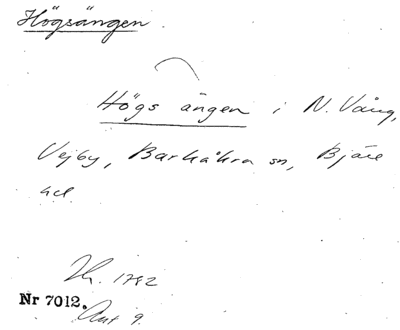 Högsängen.
Högs ängen i N. Vång,
Vejby, Barkåkra sn, Bjäre
hd.
Jh. 1782
Nr 7012.
Akt 9.